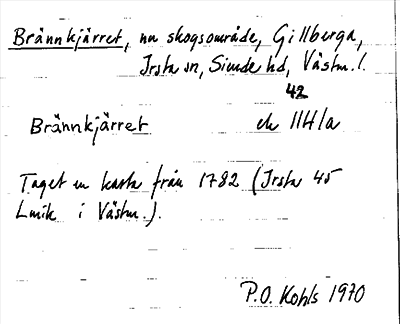 Brännkjärret, nu skogsområde, Gillberga,
Irsta sn, Siende hd, Västm. l.
42
Brännkjärret ek 11H1a
Taget ur karta från 1782 (Irsta 45
Lmk i Västm.).
P.O. Kohls 1970